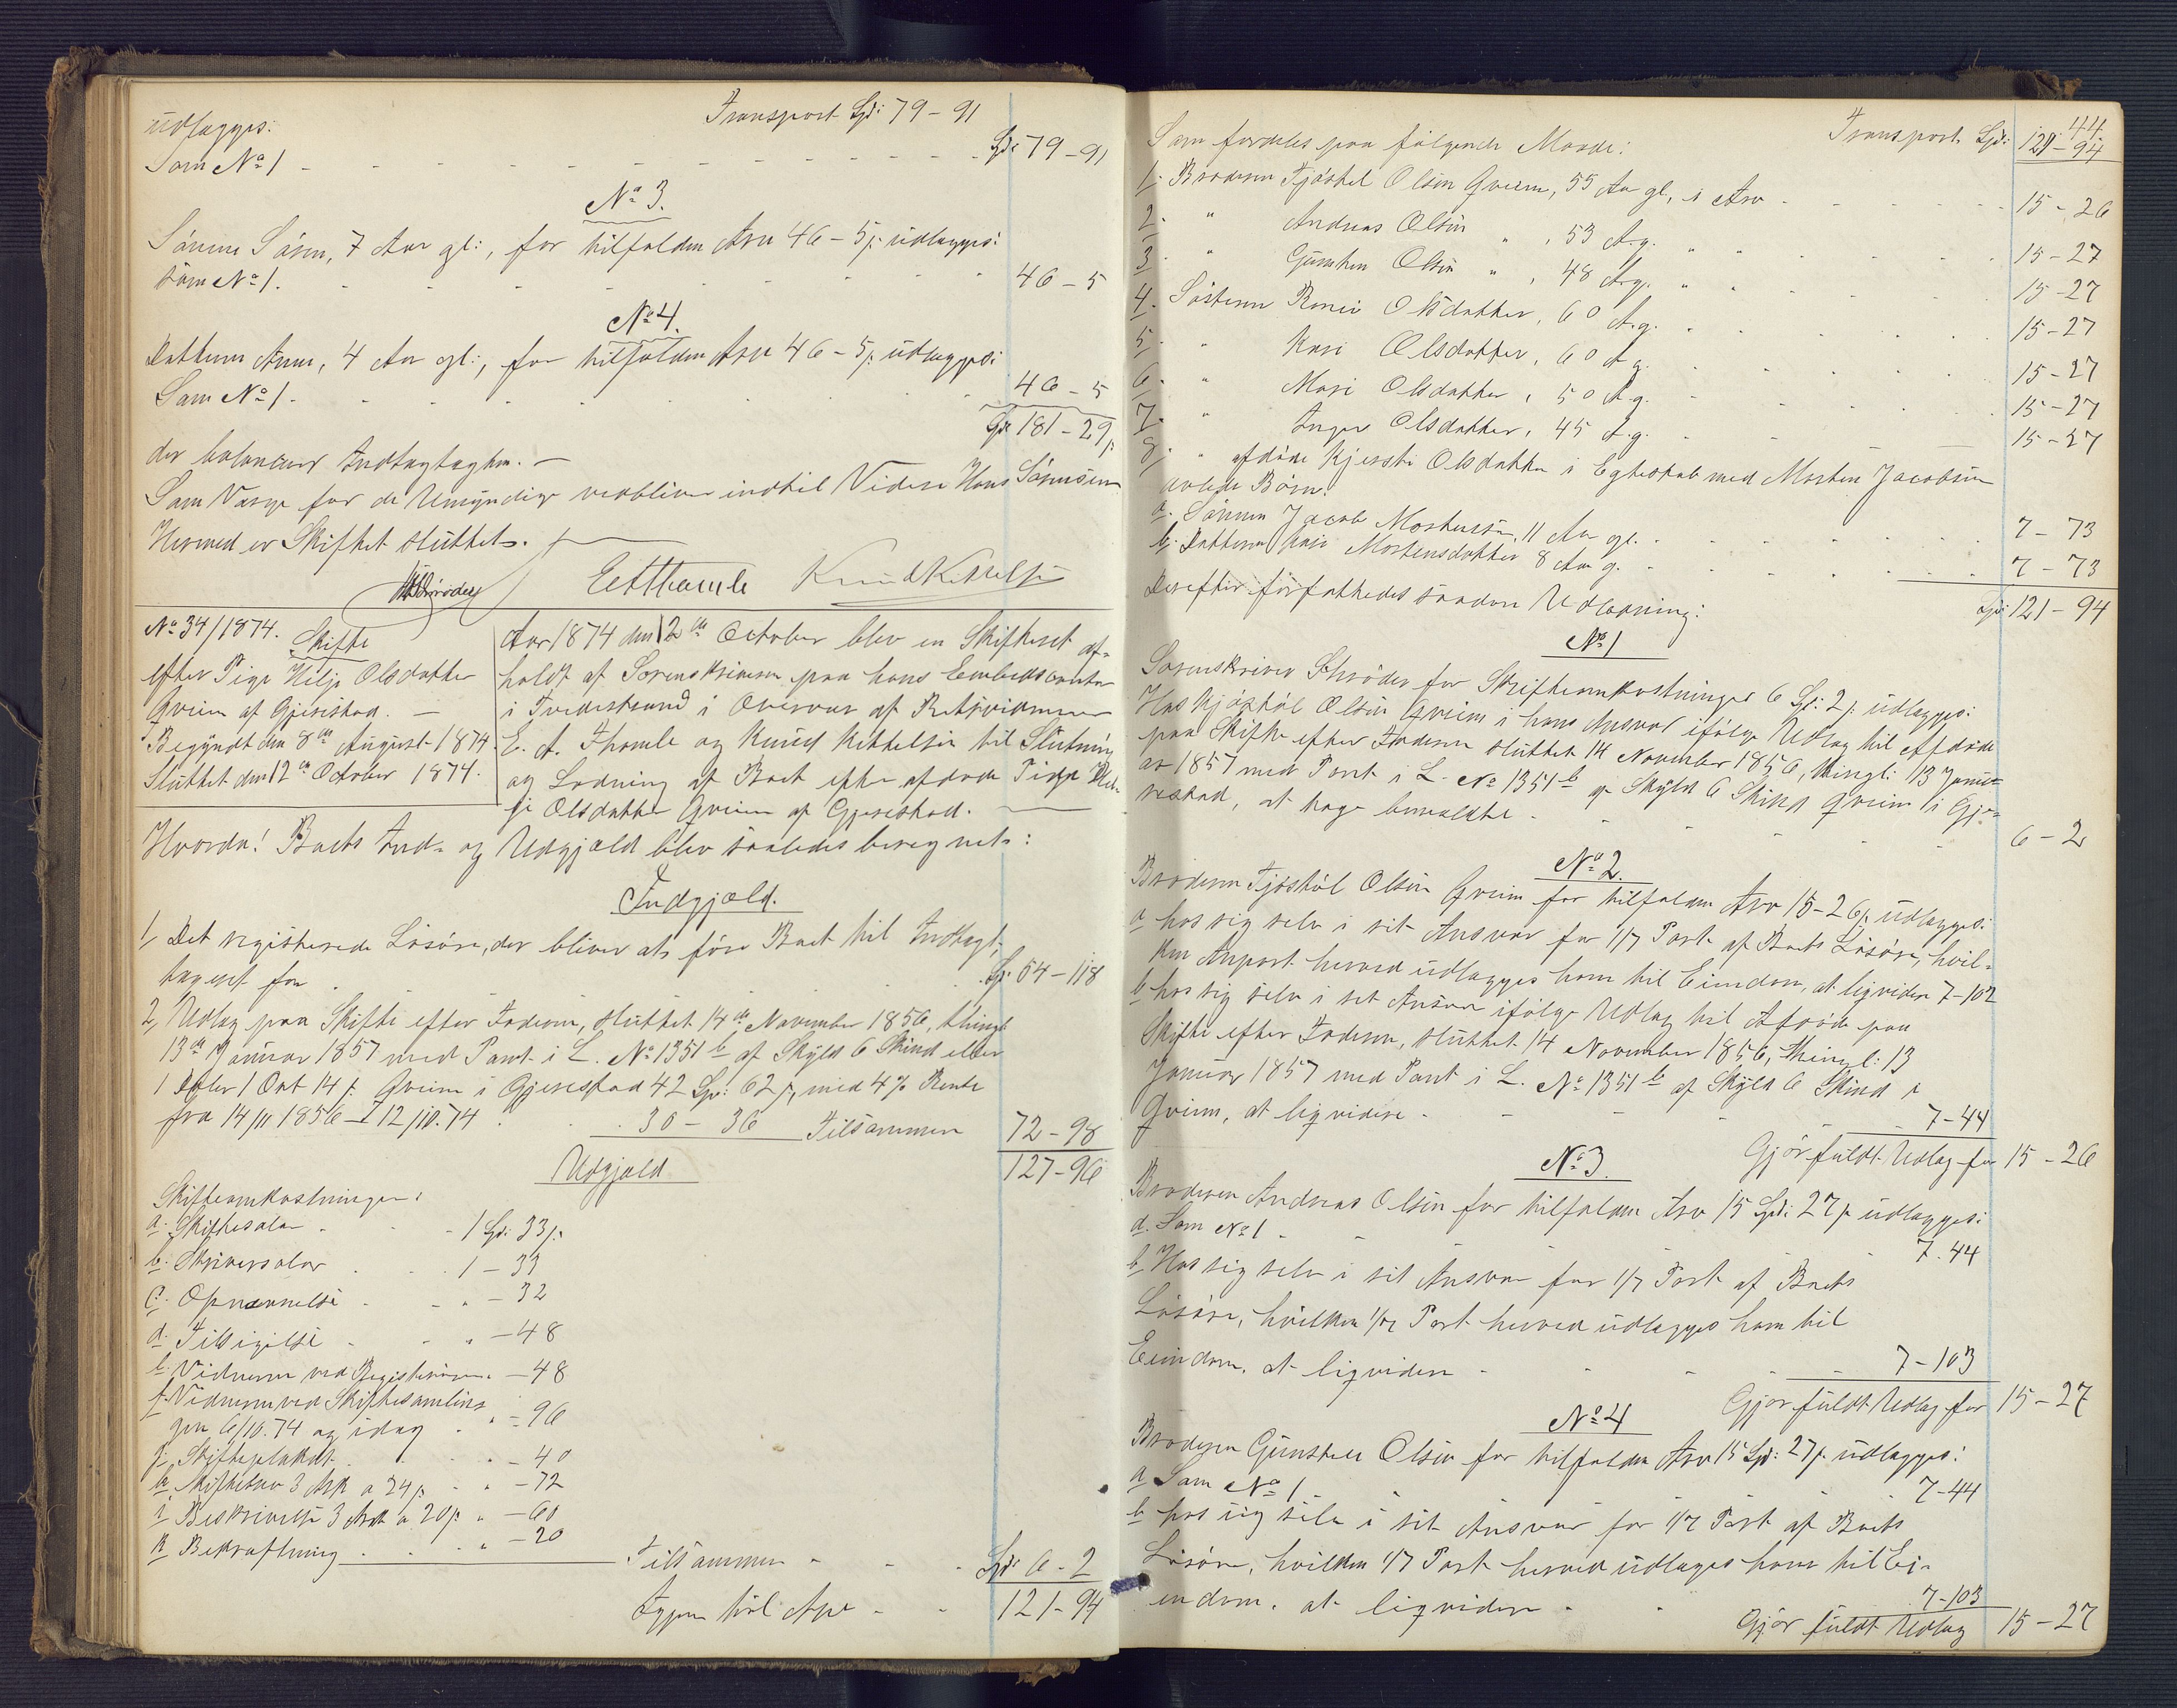 Transport Spd: 79 - 91
udlægges:
Som No 1 - - - Spd: 79 - 91
No 3.
Sønnen Søren, 7 Aar gl:, for tilfalden Arv 46 - 5 s. udlægges:
som No 1. - - - 46 - 5
No 4.
Datteren Anne, 4 Aar gl:, for tilfalden Arv 46 - 5 s. udlægges:
Som No 1. - - - 46 - 5
Spd 181 - 29 s.
der balancerer Indtægtssiden. —
Som Værge for de Umyndige vedbliver indtil Videre Hans Sørensen
Hermed er Skiftet sluttet. —
Schrøder E A Thomle Knud Kittelsen
No 34/1874.
Skifte
efter Pige Helje Olsdatter
Qveim af Gjerestad. —
Begyndt den 8de August 1874.
Sluttet den 12te October 1874.
Aar 1874 den 12te October blev en Skifteret af-
holdt af Sorenskriveren paa hans Embedscontor
i Tvedestrand i Overvær af Retsvidnerne
E. A. Thomle og Knud Kittelsen til Slutning
og Lodning af Boet efter afdøde Pige Hel-
je Olsdatter Qveim af Gjerestad. —
Hvorda! Boets Ind- og Udgjæld blev saaledes beregnet:
Indgjæld.
1, Det registrerede Løsøre, der bliver at føre Boet til Indtægt,
taxeret for . . . Sp. 54 - 118
2, Udlæg paa Skifte efter Faderen, sluttet 14de November 1856, thingl.
13de Januar 1857 med Pant i L. No 1351 b af Skyld 6 Skind eller
1 Daler 1 Ort 14 s. Qveim i Gjerestad 42 Spd: 62 s, med 4% Rente
fra 14/11 1856 - 12/10.74 . . 30 - 36 Tilsammen 72 - 98
127 - 96
Udgjæld
Skifteomkostninger:
a. Skiftesalær . - 1 Spd: 33 s.
b. Skriversalær . . 1 - 33
c. Opnævnelse . - " - 32
d. Tilsigelse . - " - 48
e. Vidnerne ved Registreringen " - 48
f. Vidnerne ved Skiftesamlin-
gen 6/10.74 og idag . " - 96
g. Skifteplakat . . . - 40
h. Skiftebrev 3 Ark a 24 s. - " - 72
i. Beskrivelse 3 Ark a 20 s. " - 60
k Bekræftning . . . " - 20
Tilsammen - - Spd: 6 - 2
Igjen til Arv - - 121 - 94
44.
Transport Spd: 121 - 94
Som fordeles paa følgende Maade:
1. Broderen Tjøstel Olsen Qveim, 55 Aar gl, i Arv - - - 15 - 26
2. " Andreas Olsen " , 53 A.g. " " - - 15 - 27
3. " Gunsten Olsen " , 48 A.g. " - - 15 - 27
4. Søsteren Ronei Olsdatter, 60 A.g. - - 15 - 27
5. " Kari Olsdatter, 60 A g. - - 15 - 27
6. " Mari Olsdatter, 50 A.g. - - 15 - 27
7. " Inger Olsdatter, 45 A.g. - - 15 - 27
8, " afdøde Kjersti Olsdatter i Egteskab med Morten Jacobsen
avlede Børn:
a. Sønnen Jacob Mortensen, 11 Aar gl. - - 7 - 73
b. Datteren Kari Mortensdatter 8 Aar g. - - 7 - 73
Spd: 121 - 94
Derefter forfattedes saadan Udlodning:
No 1
Sorenskriver Schrøder for Skifteomkostninger 6 Sp: 2 s. udlægges:
Hos Kjøstøl Olsen Qveim i hans Ansvar ifølge Udlæg til Afdøde
paa Skifte efter Faderen sluttet 14 November 1856, thingl: 13 Janu-
ar 1857 med Pant i L. No 1351 b af Skyld 6 Skind Qveim i Gje-
restad, at tage bemeldte - - - 6 - 2
No 2.
Broderen Tjøstøl Olsen Qveim for tilfalden Arv 15 - 26 s. udlægges:
a hos sig selv i sit Ansvar for 1/7 Part af Boets Løsøre, hvil-
ken Anpart herved udlægges ham til Eiendom, at liqvidere 7 - 102
b hos sig selv i sit Ansvar ifølge Udlæg til Afdøde paa
Skifte efter Faderen, sluttet 14 November 1856, thingl: 13
Januar 1857 med Pant i L. No 1351 b af Skyld 6 Skind i
Qveim, at liqvidere - - - 7 - 44
Gjør fuldt Udlæg for 15 - 26
No 3.
Broderen Andreas Olsen for tilfalden Arv 15 Spd: 27 s. udlægges:
a. Som No 1 - - - 7 . 44
b Hos sig selv i sit Ansvar for 1/7 Part af Boets
Løsøre, hvilken 1/7 Part herved udlægges ham til
Eiendom, at liqvidere - - - 7 - 103
Gjør fuldt Udlæg for 15 - 27
No 4
Broderen Gunsten Olsen for tilfalden Arv 15 Spd: 27 s. udlægges:
a Som No 1 - - - 7 - 44
b hos sig selv i sit Ansvar for 1/7 Part af Boets
Løsøre, hvilken 1/7 Part herved udlægges ham til Ei-
endom, at liqvidere - - 7 - 103
Gjør fuldt Udlæg 15 - 27